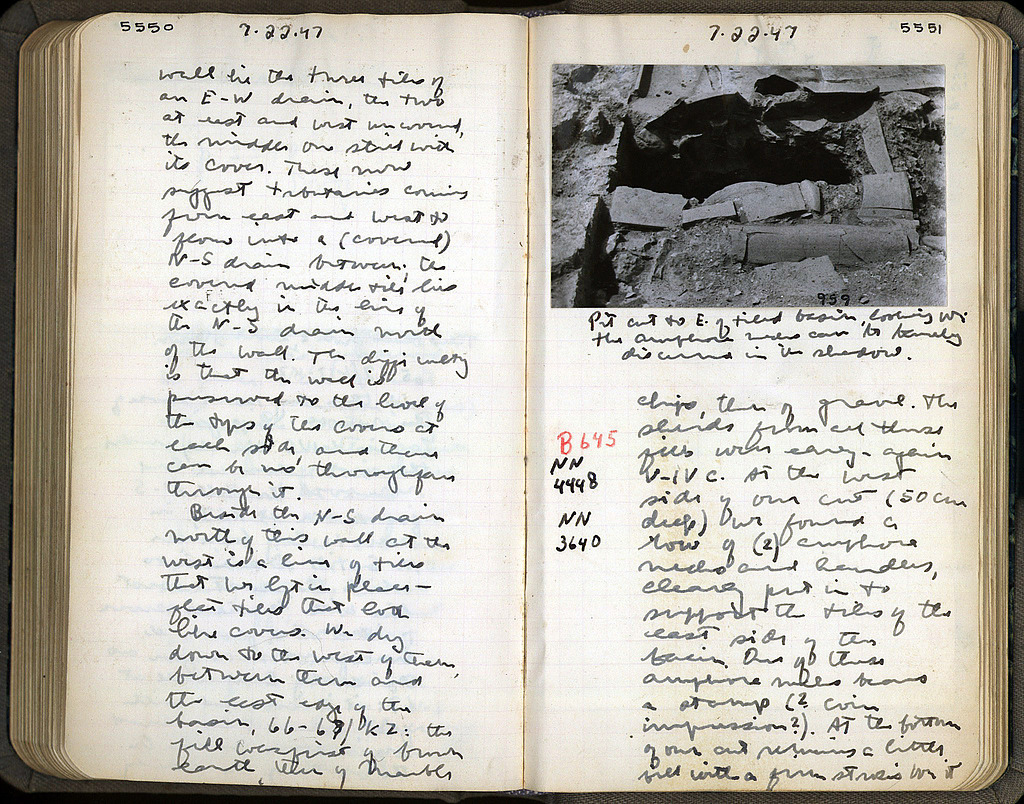 5550 7.22.47
wall lie the three tiles of
an E-W drain, the two
at east and west uncovered,
the middle one still with
its cover. These now
suggest tributaries coming
from east and west to
flow into a (covered)
N-S drain between; the
covered middle tile lies
exactly in the line of
the N-S drain north
of the wall. The difficulty
is that the wall is
preserved to the level of
the tops of the covers at
each side, and there
can be no thoroughfare
through it.
Beside the N-S drain
north of this wall at the
west is a line of tiles
that we left in place –
flat tiles that look
like covers. We dig
down to the west of them,
between them and
the east edge of the
basin, 66-68/ΚΖ: the
fill was first of brown
earth, then of marble
7.22.47 5551
959
Pit cut to E. of tiled basin, looking W.
the amphora necks can be barely
discerned in the shadow.
chips, then of gravel. The
sherds from all these
fills were early – again
V-IV c. At the west
side of our cut (50 cm
deep) we found a
row of (2) amphora
necks and handles,
clearly put in to
support the tiles of the
east side of the
basin. One of these
amphora necks bears
a stamp (? coin
impression?). At the bottom
of our cut remains a little
fill with a firm strosis. We it
B 645
NN
4448
NN
3640